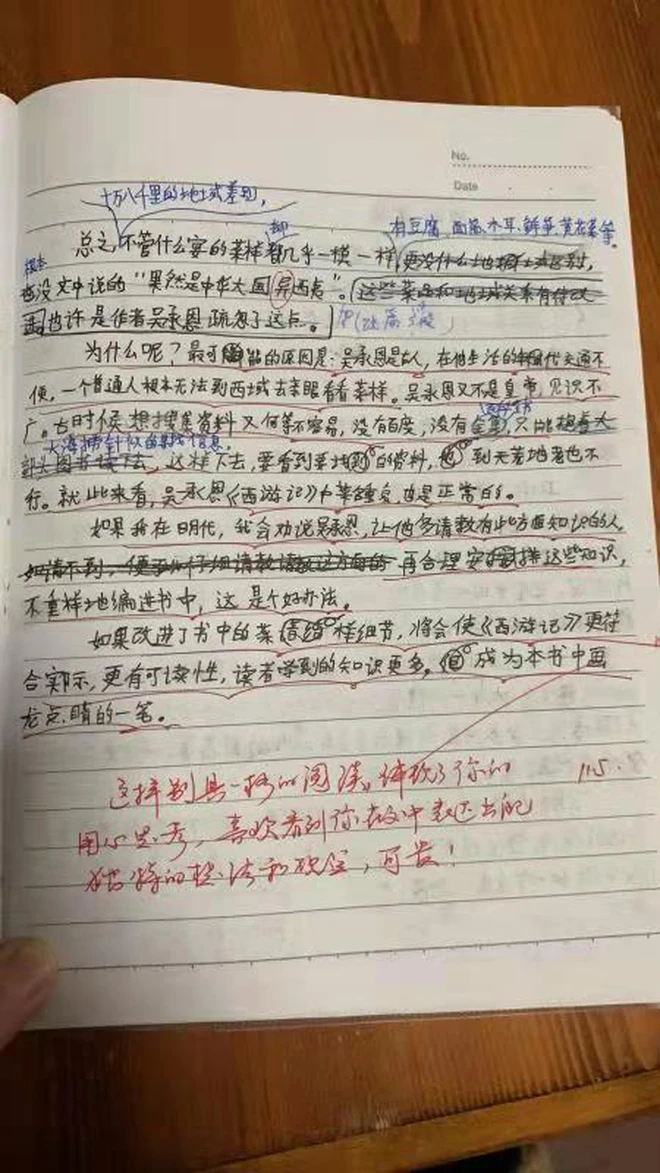 No.
Date
十万八千里的地域差别,
却
有豆腐、面筋、木耳、鲜笋、黄花菜等。
总之,不管什么宴的菜样都几乎一模一样,更没什么地域区别,
根本
也没文中说的“果然是中华大国异西夷”。这些菜品和地域关系有待改
进也许是作者吴承恩疏忽了这点。
为什么呢?最可能的原因是:吴承恩是古人,在他生活的年代交通不
便,一个普通人根本无法到西域去亲眼看看菜样。吴承恩又不是皇帝,见识不
广。古时候想搜集资料又何等不容易,没有百度,没有只能
大海捞针似的信息
部头图书读下去,这样下去,要看到要找到的资料,到天荒地老也不
行。就此来看,吴承恩《西游记》中菜重复也是正常的。
如果我在明代,我会劝说吴承恩,让他多请教有此方面知识的人,
如请不到,便仔细请教这方面的再合理安排这些知识,
不重样地编进书中,这是个好办法。
如果改进了书中的菜样细节,将会使《西游记》更符
合实际,更有可读性,读者学到的知识更多,成为本书中画
龙点睛的一笔。
这样别具一格的阅读,体现了你的
11.5.
用心思考,喜欢看到你在文中表达出的
独特的想法和观点,可贵!